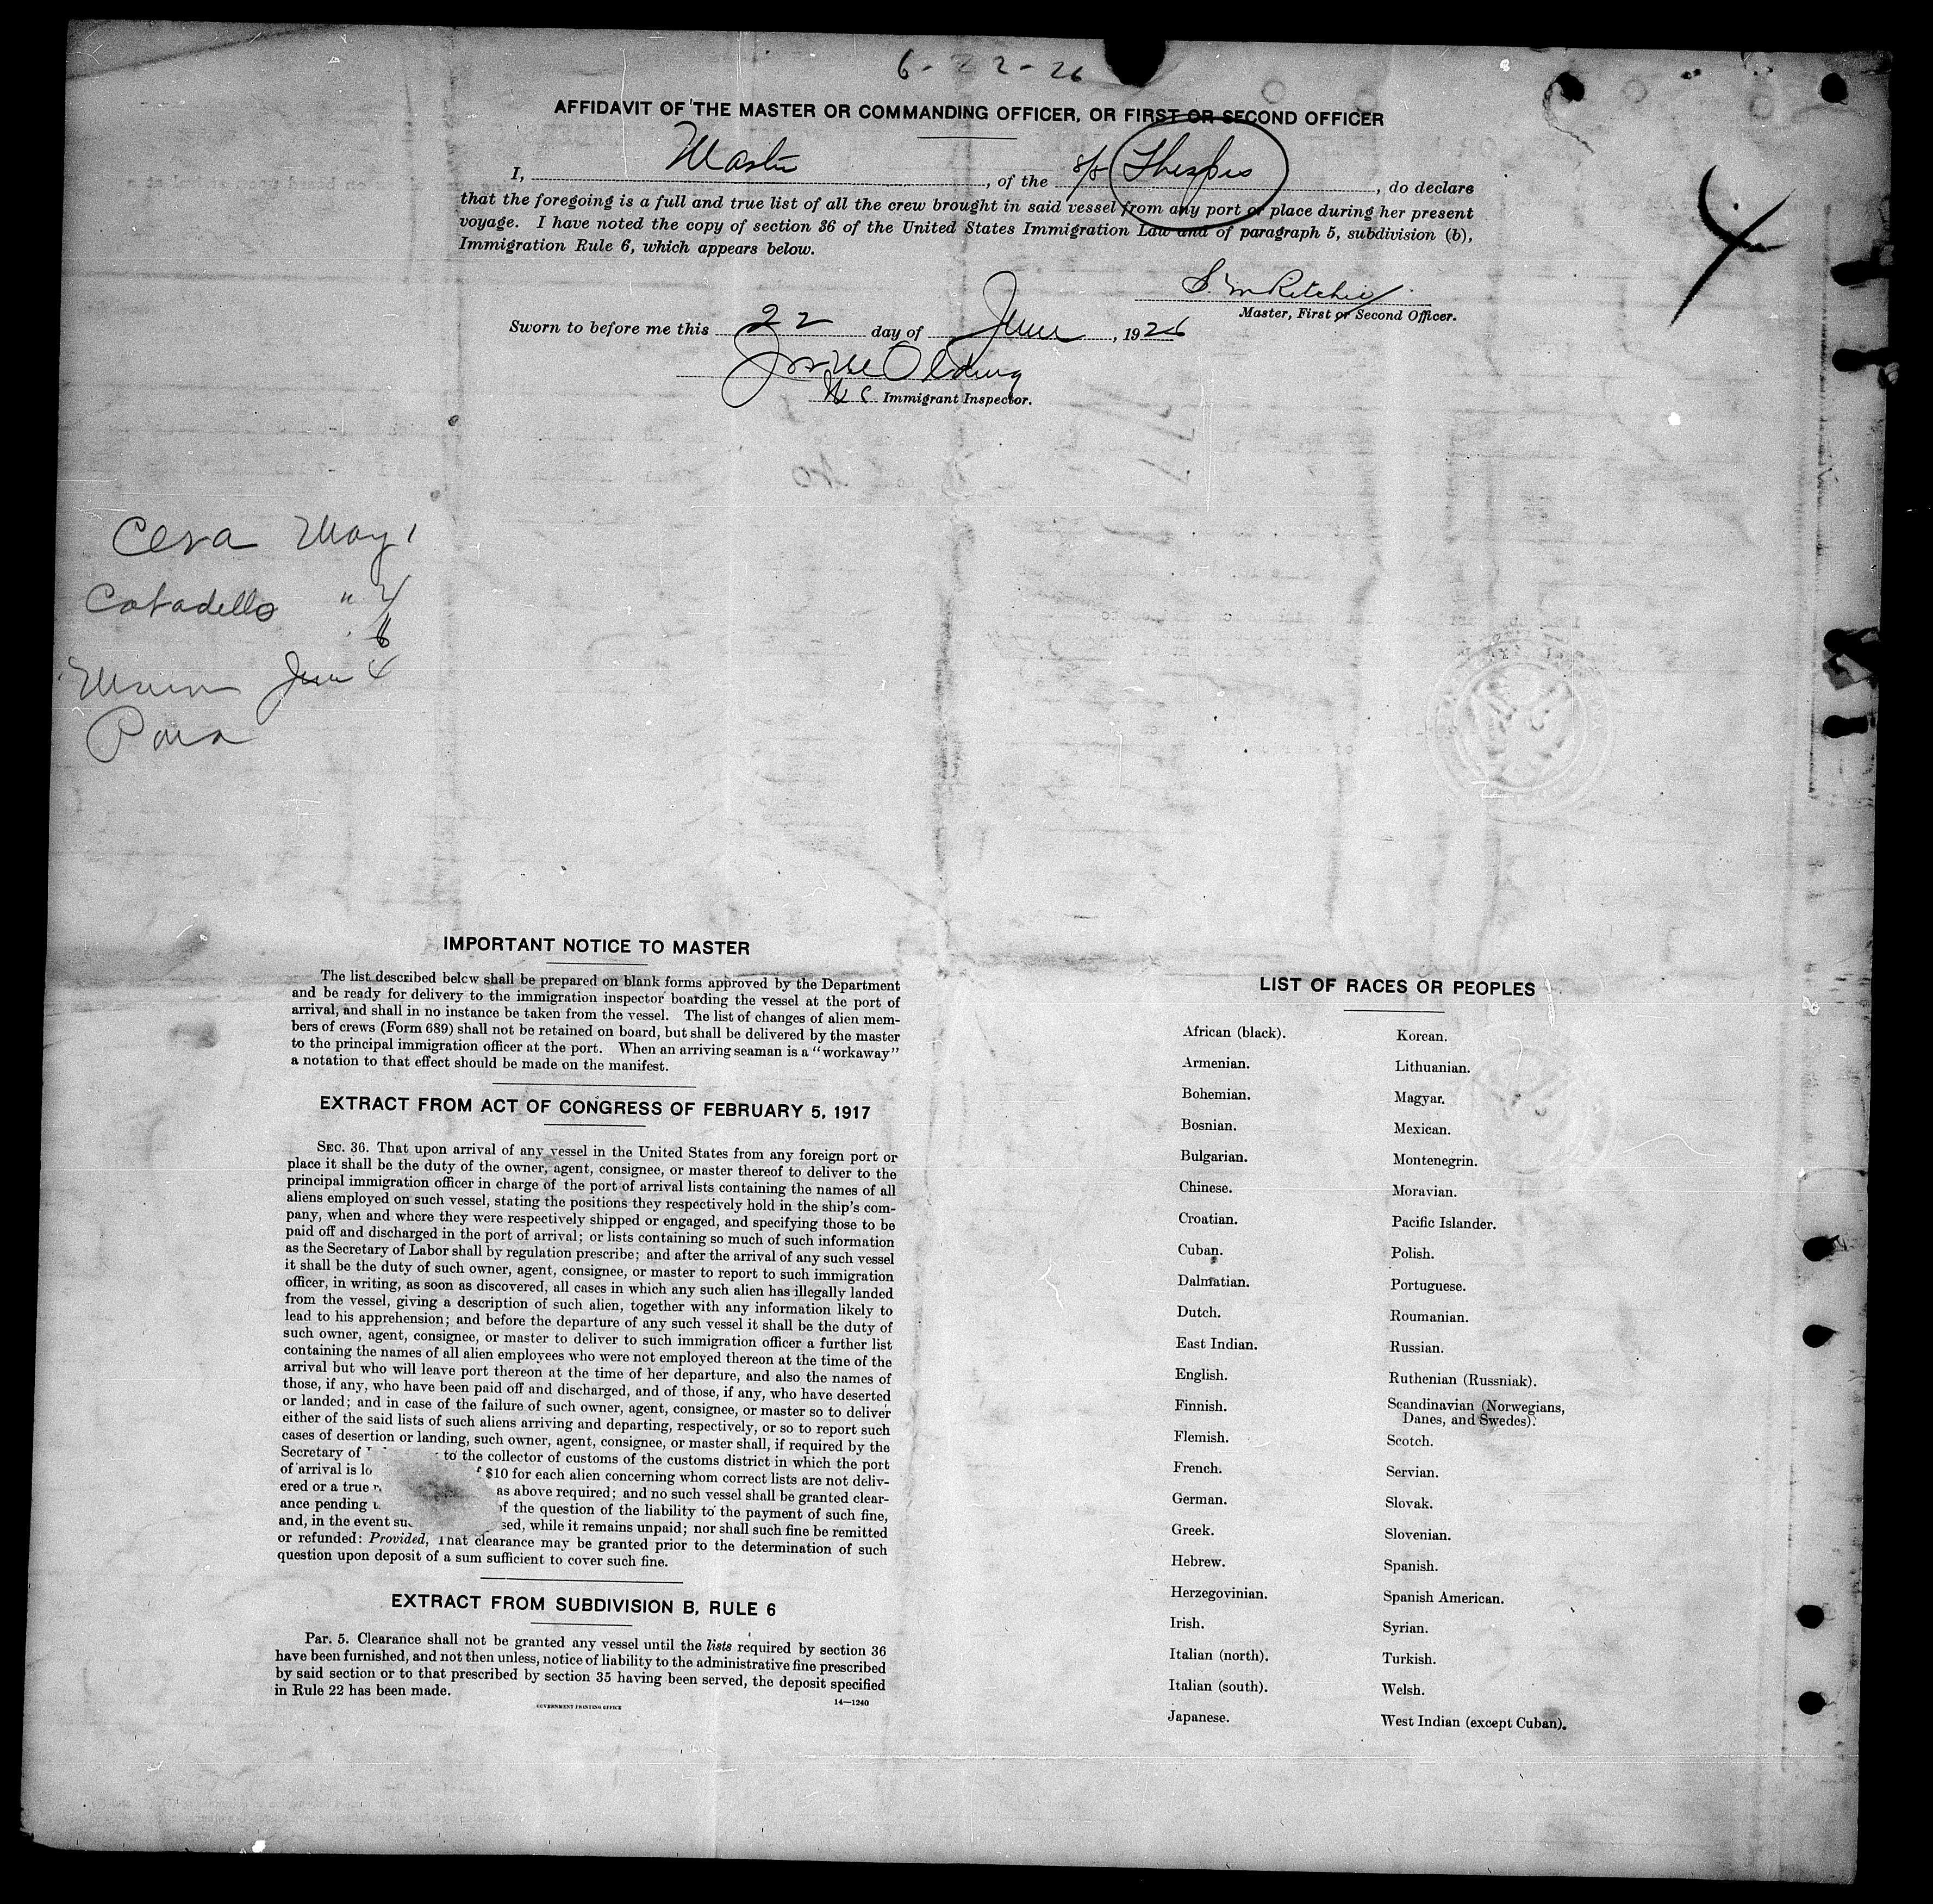 6-22-26
AFFIDAVIT OF THE MASTER OR COMMANDING OFFICER, OR FIRST OR SECOND OFFICER
I, Master, of the s/s Thespis, do declare
that the foregoing is a full and true list of all the crew brought in said vessel from any port or place during her present
voyage. I have noted the copy of section 36 of the United States Immigration Law and of paragraph 5, subdivision (b),
Immigration Rule 6, which appears below.
S. M Ritchie
Master, First or Second Officer.
Sworn to before me this 22 day of June, 1926
Olding
Immigrant Inspector.
May 1
Cabadello " 4
6
June 4
Para
IMPORTANT NOTICE TO MASTER
The list described below shall be prepared on blank forms approved by the Department
and be ready for delivery to the immigration inspector boarding the vessel at the port of
arrival, and shall in no instance be taken from the vessel. The list of changes of alien mem-
bers of crews (Form 689) shall not be retained on board, but shall be delivered by the master
to the principal immigration officer at the port. When an arriving seaman is a "workaway"
a notation to that effect should be made on the manifest.
EXTRACT FROM ACT OF CONGRESS OF FEBRUARY 5, 1917
SEC. 36. That upon arrival of any vessel in the United States from any foreign port or
place it shall be the duty of the owner, agent, consignee, or master thereof to deliver to the
principal immigration officer in charge of the port of arrival lists containing the names of all
aliens employed on such vessel, stating the positions they respectively hold in the ship's com-
pany, when and where they were respectively shipped or engaged, and specifying those to be
paid off and discharged in the port of arrival; or lists containing so much of such information
as the Secretary of Labor shall by regulation prescribe; and after the arrival of any such vessel
it shall be the duty of such owner, agent, consignee, or master to report to such immigration
officer, in writing, as soon as discovered, all cases in which any such alien has illegally landed
from the vessel, giving a description of such alien, together with any information likely to
lead to his apprehension; and before the departure of any such vessel it shall be the duty of
such owner, agent, consignee, or master to deliver to such immigration officer a further list
containing the names of all alien employees who were not employed thereon at the time of the
arrival but who will leave port thereon at the time of her departure, and also the names of
those, if any, who have been paid off and discharged, and of those, if any, who have deserted
or landed; and in case of the failure of such owner, agent, consignee, or master so to deliver
either of the said lists of such aliens arriving and departing, respectively, or so to report such
cases of desertion or landing, such owner, agent, consignee, or master shall, if required by the
Secretary of to the collector of customs of the customs district in which the port
of arrival is lo $10 for each alien concerning whom correct lists are not deliv-
ered or a true as above required; and no such vessel shall be granted clear-
ance pending of the question of the liability to the payment of such fine,
and, in the event su sed, while it remains unpaid; nor shall such fine be remitted
or refunded: Provided, That clearance may be granted prior to the determination of such
question upon deposit of a sum sufficient to cover such fine.
EXTRACT FROM SUBDIVISION B, RULE 6
Par. 5. Clearance shall not be granted any vessel until the lists required by section 36
have been furnished, and not then unless, notice of liability to the administrative fine prescribed
by said section or to that prescribed by section 35 having been served, the deposit specified
in Rule 22 has been made.
GOVERNMENT PRINTING OFFICE 14—1240
LIST OF RACES OR PEOPLES
African (black). Korean.
Armenian. Lithuanian.
Bohemian. Magyar.
Bosnian. Mexican.
Bulgarian. Montenegrin.
Chinese. Moravian.
Croatian. Pacific Islander.
Cuban. Polish.
Dalmatian. Portuguese.
Dutch. Roumanian.
East Indian. Russian.
English. Ruthenian (Russniak).
Finnish. Scandinavian (Norwegians,
Danes, and Swedes).
Flemish. Scotch.
French. Servian.
German. Slovak.
Greek. Slovenian.
Hebrew. Spanish.
Herzegovinian. Spanish American.
Irish. Syrian.
Italian (north). Turkish.
Italian (south). Welsh.
Japanese. West Indian (except Cuban).